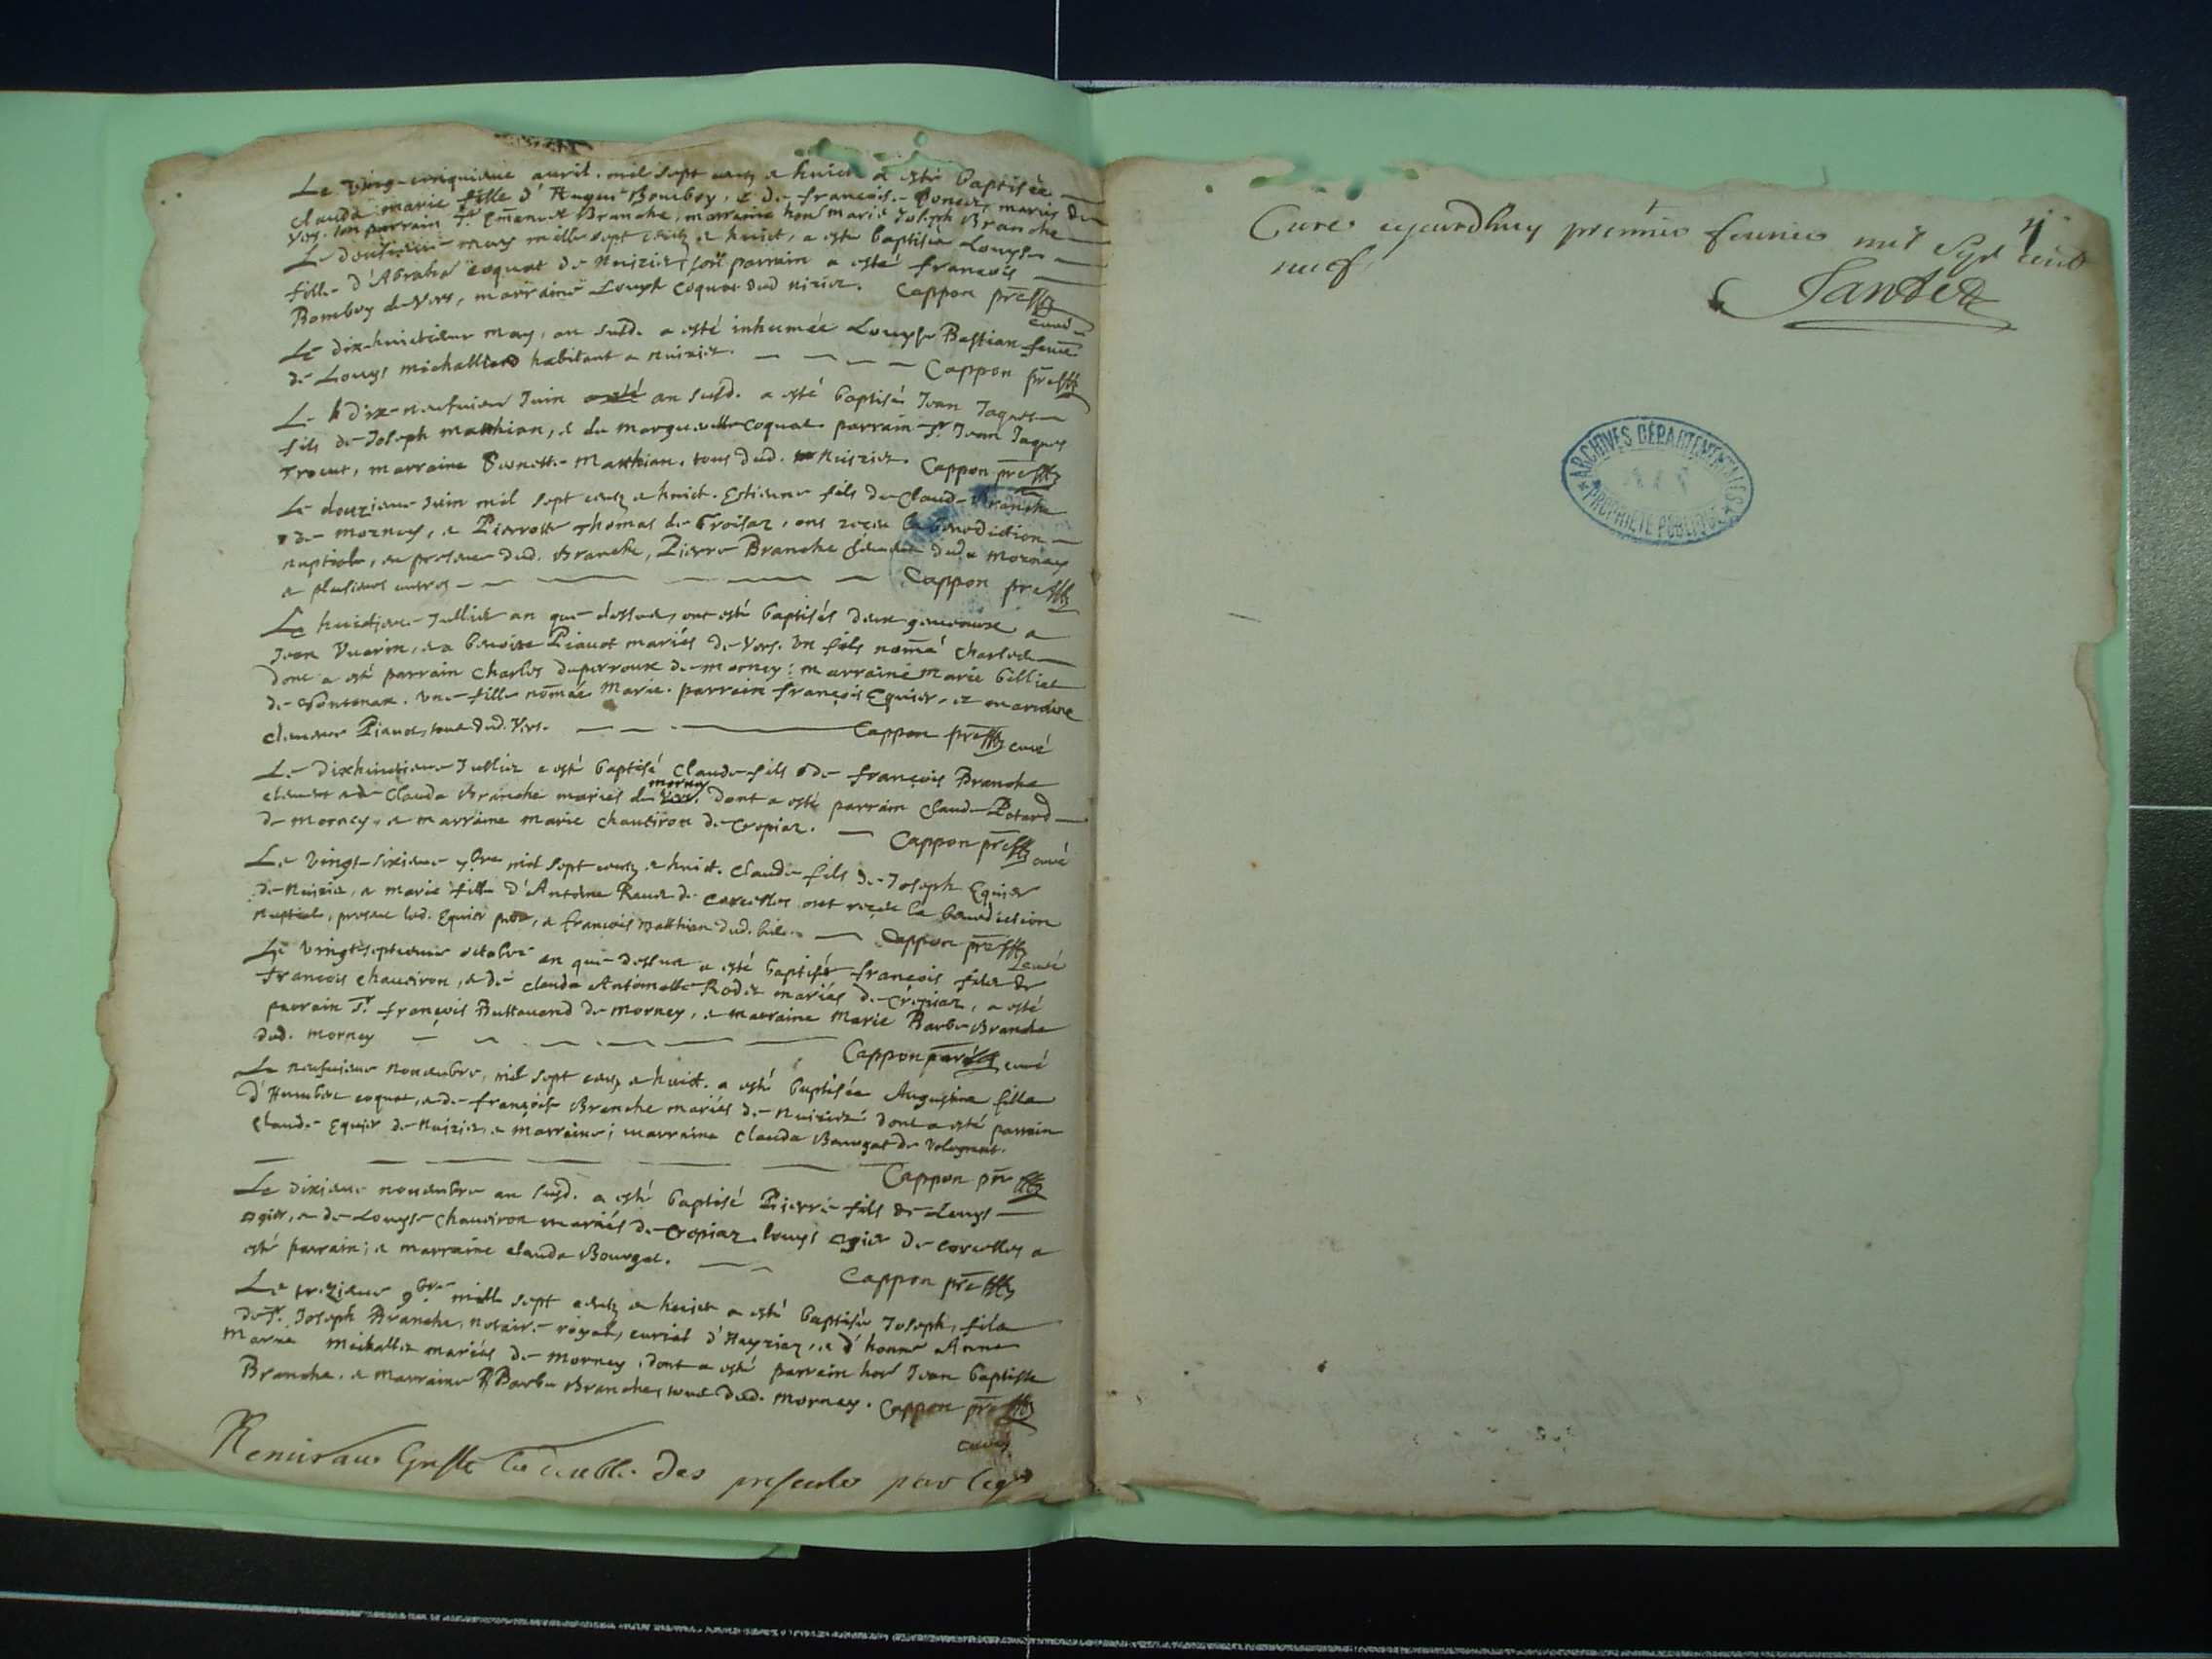 Le vingt-cinquieme avril. mil sept centz e huict a esté baptisée
Clauda marie fille d'Hugue Bomboy, e de françoise mariés de
Vers. son parrain Sr. Branche, marraine marie Joseph Branche
Le may mille sept centz e huict, a esté baptisée Louyse
fille d'Abraha coquat de Nuiziez, son parrain a esté françois
Bomboy de Vers, marraine Louyse coquat dud nizier. Cappon pre
curé
Le dix-huictieme may, an susd. a esté inhumée Louyse Bastian
de Louys michalliard habitant a nuiziez. Cappon pre
Le dix-neufuieme Juin an susd. a esté baptisé Jean Jaques
fils de Joseph Matthian, e de Marguerite coquat. parrain Sr. Jean Jaques
Trocut, marraine Pernette Matthian, tous dud. Nuiziez. Cappon pre
Le douzieme Juin mil sept centz e huict. Estienne fils de Claude Branche
de Mornay, e Pierrotte Thomas de Groisiaz, ont reçeu la benediction
nuptiale, en presence dud. Branche, Pierre Branche dud. Mornay
e plusieurs autres Cappon pre
Le huictieme Julliet an que dessus, ont esté baptisés deux gemeaux a
Jean Vuarin, e a benoite Piauot mariés de Vers. Un fils nomé Charles
dont a esté parrain Charles duperroux de morney: marraine Marie billiet
de . une fille nomée Marie. parrain françois Equier, et maraine
Piauot, tous dud. Vers. Cappon pre curé
Le dixhuictieme Julliet a esté baptisé Claude fils de françois Branche
e de Clauda Branche mariés de morney Vers. dont a esté parrain Claude Potard
de morney, e marraine marie chauiron de Cropiaz. Cappon pre curé
Le vingt-sixieme 7bre mil sept centz e huict. Claude fils de Joseph Equier
de Nuiziez, e marie fille d'Antoine Rauet de Corcelles ont reçeu la benediction
nuptiale, presens led. Equier pere, e françois Matthian dud. lieu. Cappon pre
curé
Le vingtseptieme octobre an que dessus a esté baptisé françois fils de
françois chauiron, e de clauda Antoinette Rodet mariés de Cropiaz, a esté
parrain Sr. françois Buttauand de morney, e marraine Marie Barbe Branche
dud. morney Cappon pre curé
Le neufuieme nouembre, mil sept centz e huict. a esté baptisée Augustine fille
d'Humbert coquat, e de françoise Branche mariés de Nuiziez dont a esté parrain
Claude Equier de Nuiziez, e marraine; marraine Clauda Bourgat de Volognat.
Cappon pre
Le dixieme nouembre an susd. a esté baptisé Pierre fils de Louys
Ogier, e de Louyse chauiron mariés de Cropiaz. louys Ogier de corcelles a
esté parrain; e marraine clauda Bourgat. Cappon pre
Le trezieme 9bre mille sept centz e huict a esté baptisé Joseph, fils
de Sr. Joseph Branche, notaire royal, curial d'Heyriaz, e d' Anne
Marie Michallet mariés de Morney, dont a esté parrain hon Jean Baptiste
Branche, e marraine Barbe Branche, tous dud. Morney. Cappon pre
curé
Remis au Greffe le double des presents par led
Curé ce jourdhuy premier feurier mil sept cent
neuf
4
Jantet
ARCHIVES DÉPARTEMENTALES
PROPRIÉTÉ PUBLIQUE